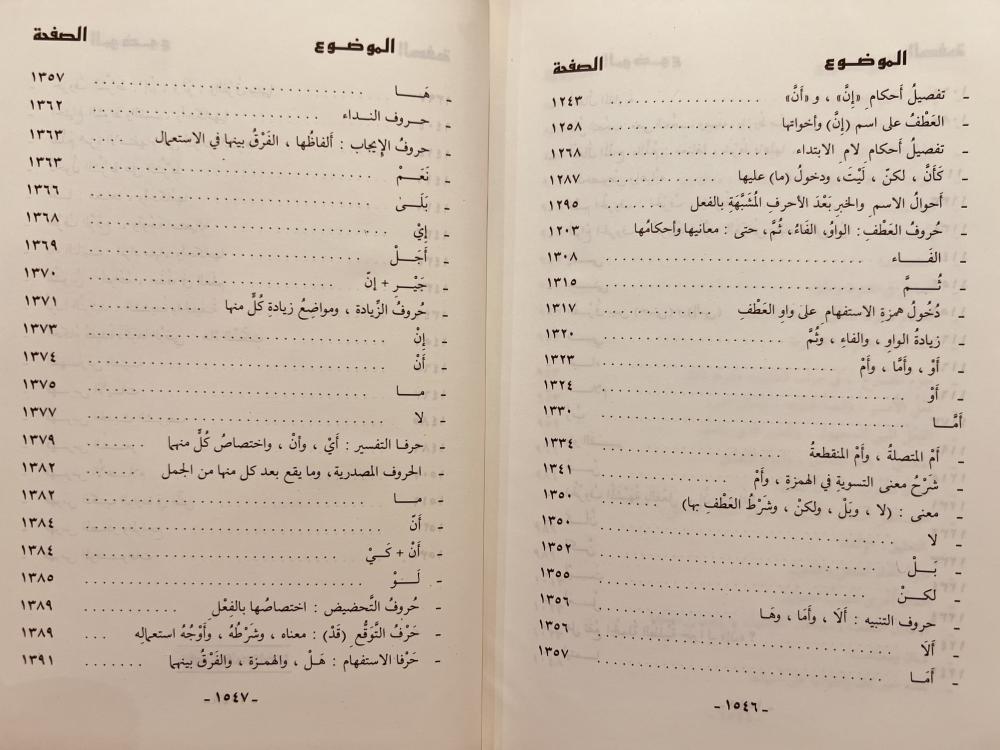 الموضوع الصفحة
ـ تفصيلُ أحكامِ «إنَّ» ، و «أنَّ» ١٢٤٣
ـ العَطْفُ على اسم (إنَّ) وأخواتها ١٢٥٨
ـ تفصيلُ أحكامِ لامِ الابتداء ١٢٦٨
ـ كَأَنَّ ، لكنّ ، لَيْتَ، ودخولُ (ما) عليها ١٢٨٧
ـ أحوالُ الاسمِ والخبرِ بَعْدَ الأحرفِ المُشَبَّهَةِ بالفعل ١٢٩٥
ـ حُروفُ العَطْفِ: الواوُ، الفَاءُ، ثُمَّ، حتى : معانيها وأحكامُها ١٢٠٣
ـ الفَـاء ١٣٠٨
ـ ثُـمَّ ١٣١٥
ـ دُخُولُ همزةِ الاستفهامِ على واوِ العَطْفِ ١٣١٧
ـ زيادةُ الواوِ ، والفاءِ ، وثُمَّ ١٣٢٠
ـ أوْ ، وأمَّا ، وأمْ ١٣٢٣
ـ أوْ ١٣٢٤
أمَّـا ١٣٣٠
ـ أمْ المتصلةُ ، وأمْ المنقطعةُ ١٣٣٤
ـ شَرْحُ معنى التسويةِ في الهمزةِ ، وأمْ ١٣٤١
ـ معنى : (لا ، وبَلْ ، ولكنْ ، وشَرْطُ العَطْفِ بها) ١٣٥٠
ـ لا ١٣٥٠
ـ بَـلْ ١٣٥٢
ـ لكـنْ ١٣٥٥
ـ حروف التنبيه : ألَا ، وأمَا ، وهَا ١٣٥٦
ـ ألَا ١٣٥٦
ـ أمَـا ١٣٥٧
ـ ١٥٤٦ ـ
الموضوع الصفحة
ـ هَـا ١٣٥٧
ـ حروف النداء ١٣٦٢
ـ حروفُ الإيجاب : ألفاظُها ، الفَرْقُ بينها في الاستعمال ١٣٦٣
ـ نَعَـمْ ١٣٦٣
ـ بَلَـى ١٣٦٦
ـ إيْ ١٣٦٨
ـ أَجَـلْ ١٣٦٩
ـ جَيْـرِ + إنّ ١٣٧٠
ـ حُروفُ الزِّيادة ، ومواضِعُ زيادةِ كُلٍّ منها ١٣٧١
ـ إنْ ١٣٧٣
ـ أنْ ١٣٧٤
ـ مـا ١٣٧٥
ـ لا ١٣٧٧
ـ حرفا التفسير : أيْ ، وأنْ ، واختصاصُ كُلٍّ منهما ١٣٧٩
ـ الحروف المصدرية، وما يقع بعد كل منها من الجمل ١٣٨٢
ـ مـا ١٣٨٢
ـ أنّ ١٣٨٤
ـ أنْ + كَيْ ١٣٨٤
ـ لَـوْ ١٣٨٥
ـ حُروفُ التَّحضيض : اختصاصُها بالفعْلِ ١٣٨٩
ـ حَرْفُ التَّوَقُّعِ (قَدْ) : معناه ، وشَرْطُهُ ، وأَوْجُهُ استعمالِه ١٣٨٩
ـ حَرْفا الاستفهام : هَلْ ، والهمزة ، والفَرْقُ بينهما ١٣٩١
ـ ١٥٤٧ ـ